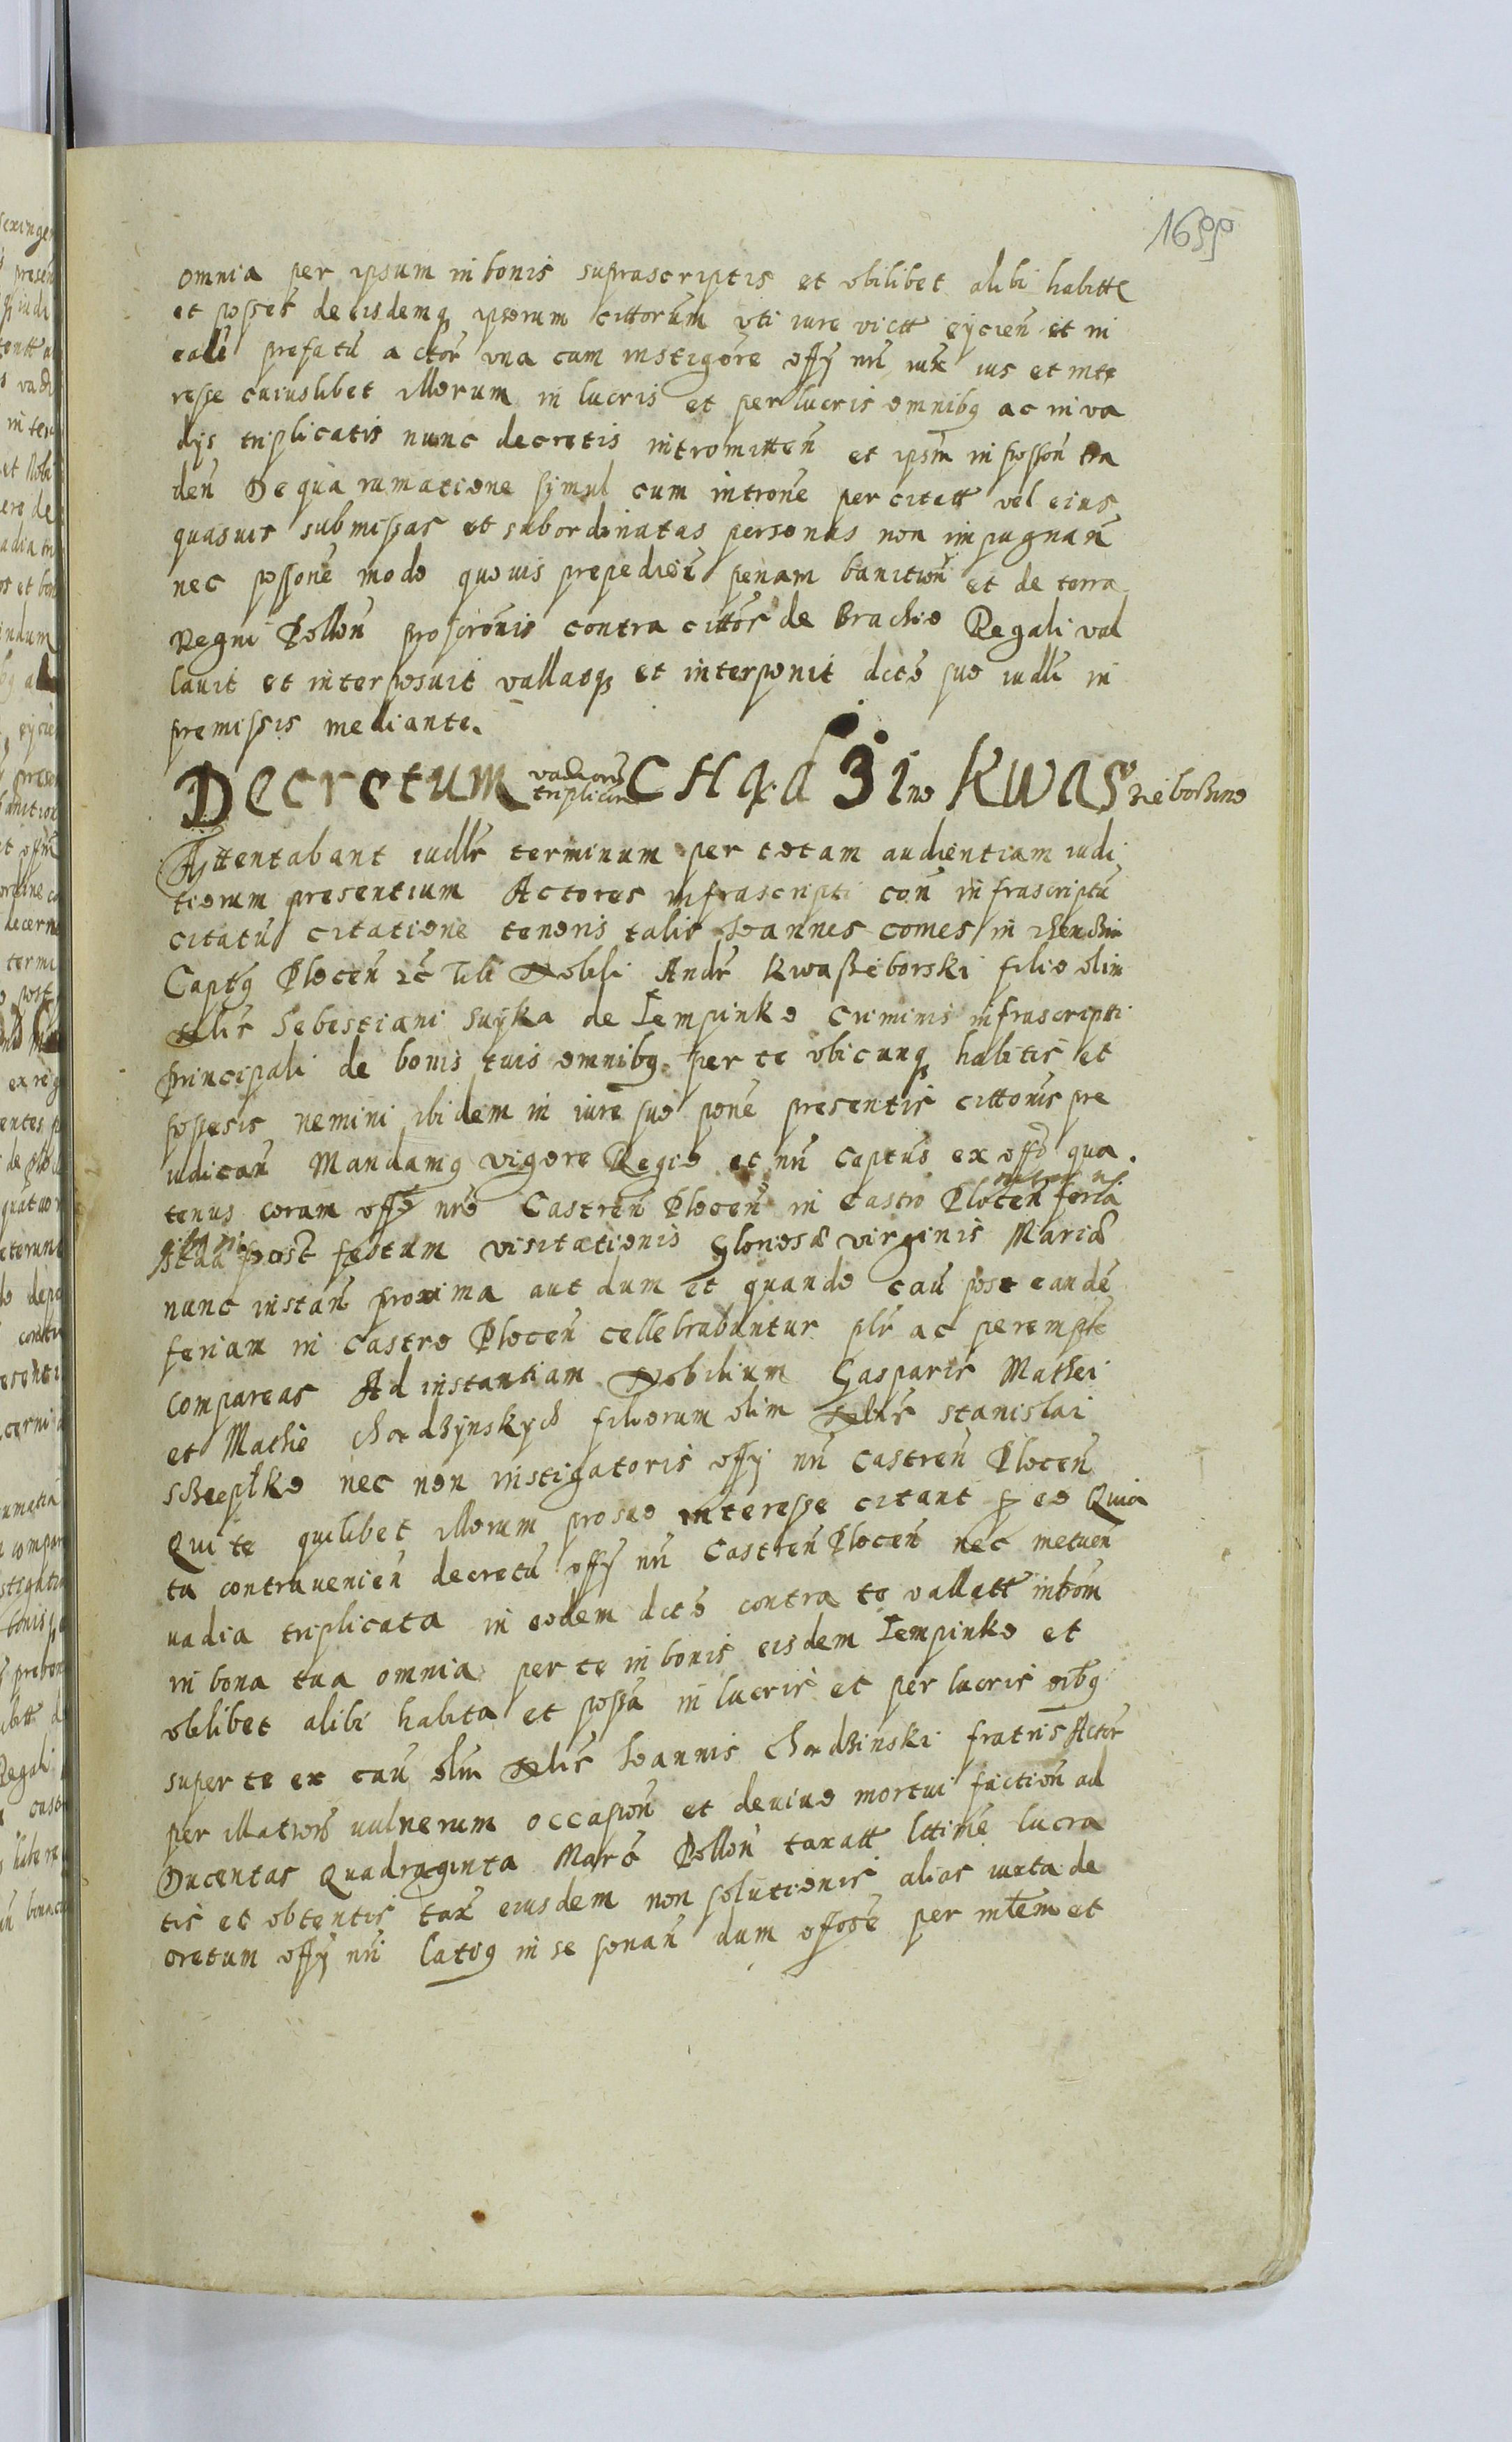 omnia per ipsum in bonis suprascriptis et vbilibet alibi habitt
et posses de eisdemq ipsorum cittorum vti iure victt eyicien et in
eade prefatu actor vna cum instigore offy nri iux ius et inte
resse cuiuslibet illorum in lucris et perlucris omnibq ac in va
dys triplicatis nunc decretis intromitten et ipsm in posson tra
den De qua rumatione symul cum introne per citatt vel eius
quasuis submissas et subordinatas personas non impugnan
nec possone modo quouis prepedien penam banition et de terra
Regni Pollon proscronis contra cittos de Brachio Regali val
lauit et interposuit vallatq et interponit dcto suo iudli in
premissis mediante.
Decretum vadiorum triplicium CHądzino Kwas zieborzino
Attentabant iudllr terminum per totam audientiam iudi
tiorum presentium Actores infrascripti con infrascriptu
citatu citatione tenoris talis Ioannes comes in
Captq Plocen zc Tibi Nobili Andr Kwassieborski filio olim
Nlis Sebestiani suyka de Lempinko Criminis infrascripti
principali de bonis tuis omnibq per te vbicunq habitis et
possesis nemini ibidem in iure suo pone presentis cittonis pre
iudican Mandamq vigore Regio et nri captus ex offo qua
tenus coram offo nro Castren Plocen in Castro Plocen feria
post festum visitationis Gloriosæ virginis Mariæ
nunc instan proxima aut dum et quando cau post eande
feriam in Castro Plocen cellebrabuntur plr ac perempte
compareas Ad instantiam Nobilium Gasparis Mathei
et Mathie chądzynskych filiorum olim Nlis Stanislai
Szczepłko nec non instigatoris offy nri Castren Plocen
Qui te quilibet illorum pro suo interesse citant p eo Quia
tu contrauenien decretu offy nri Castren Plocen nec metuen
uadia triplicata in eodem dcto contra te vallatt introm
in bona tua omnia per te in bonis eisdem Lempinko et
vbilibet alibi habita et possa in lucris et perlucris oibq
super te ex cau olim Nlis Ioannis chądzinski fratris Actor
per illation vulnerum occasion et de viuo mortui faction ad
Ducentas Quadraginta Marc Pollon taxatt lttime lucra
tis et obtentis tax eiusdem non solutionis alias iuxta de
cretum offy nri latiq in se sonan dum offose per mtem et